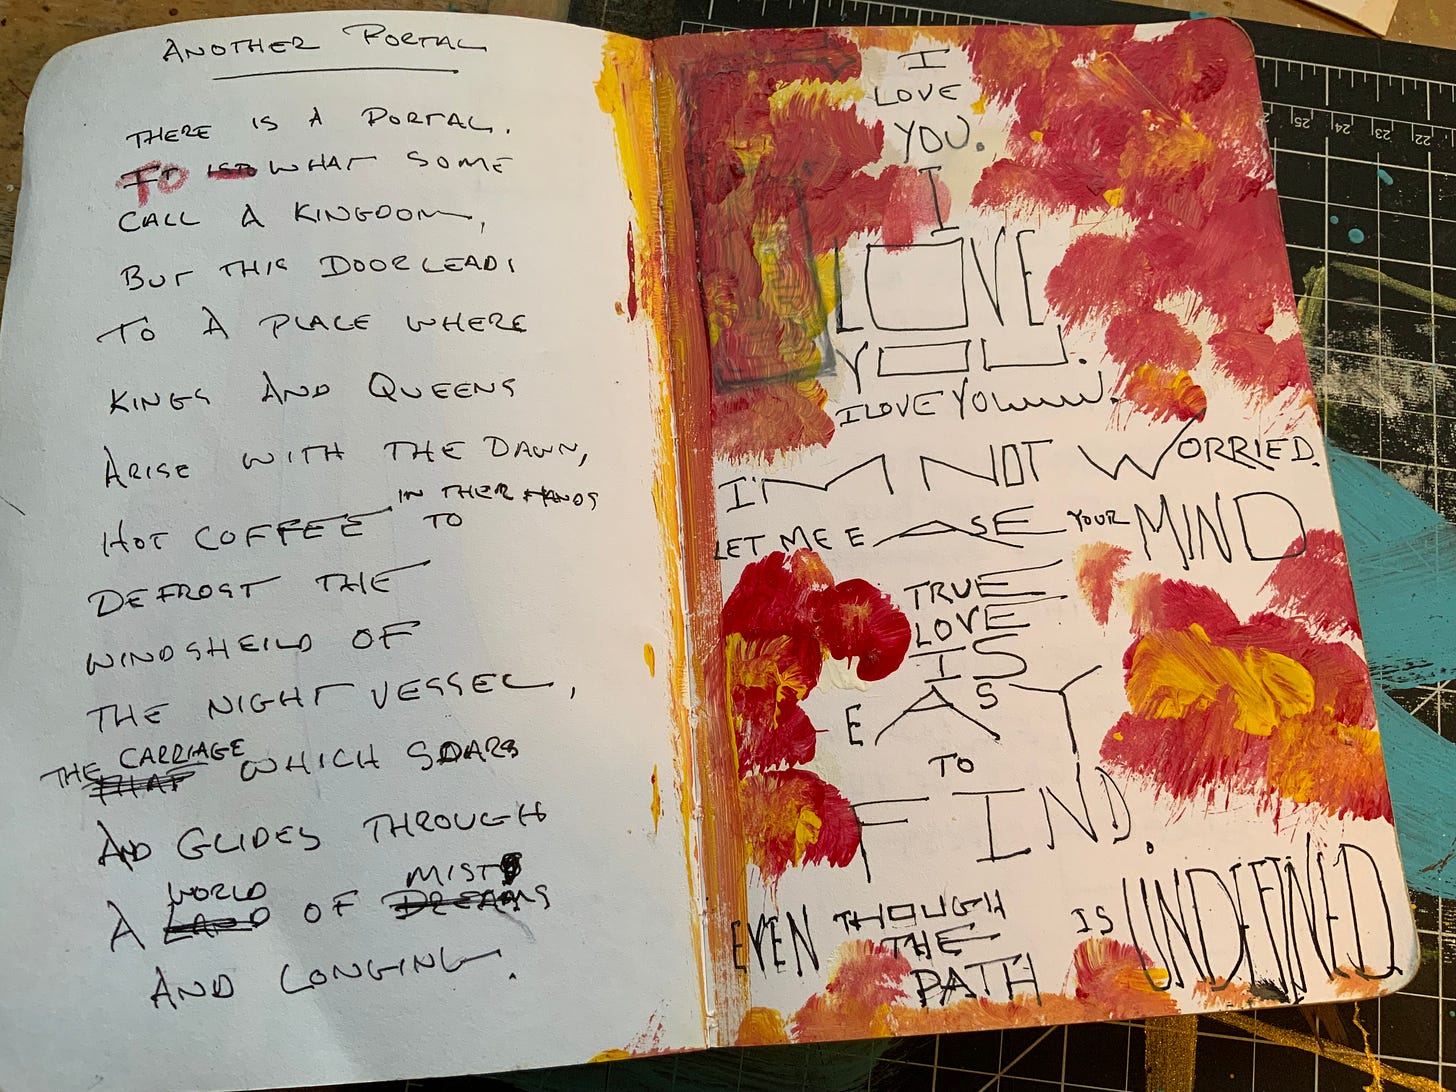 ANOTHER PORTAL
THERE IS A PORTAL.
TO WHAT SOME
CALL A KINGDOM,
BUT THIS DOOR LEADS
TO A PLACE WHERE
KINGS AND QUEENS
ARISE WITH THE DAWN,
IN THER HANDS
HOT COFFEE TO
DEFROST THE
WINDSHEILD OF
THE NIGHT VESSEL,
THE CARRIAGE WHICH SOARS
AND GLIDES THROUGH
A WORLD OF MISTS
AND LONGING.
I
LOVE
YOU.
I
LOVE
YOU.
I LOVE YOU.
I'M NOT WORRIED.
LET ME EASE YOUR MIND
TRUE
LOVE
IS
EASY
TO
FIND.
EVEN THOUGH
THE
PATH
IS UNDEFINED
25 24 23 22